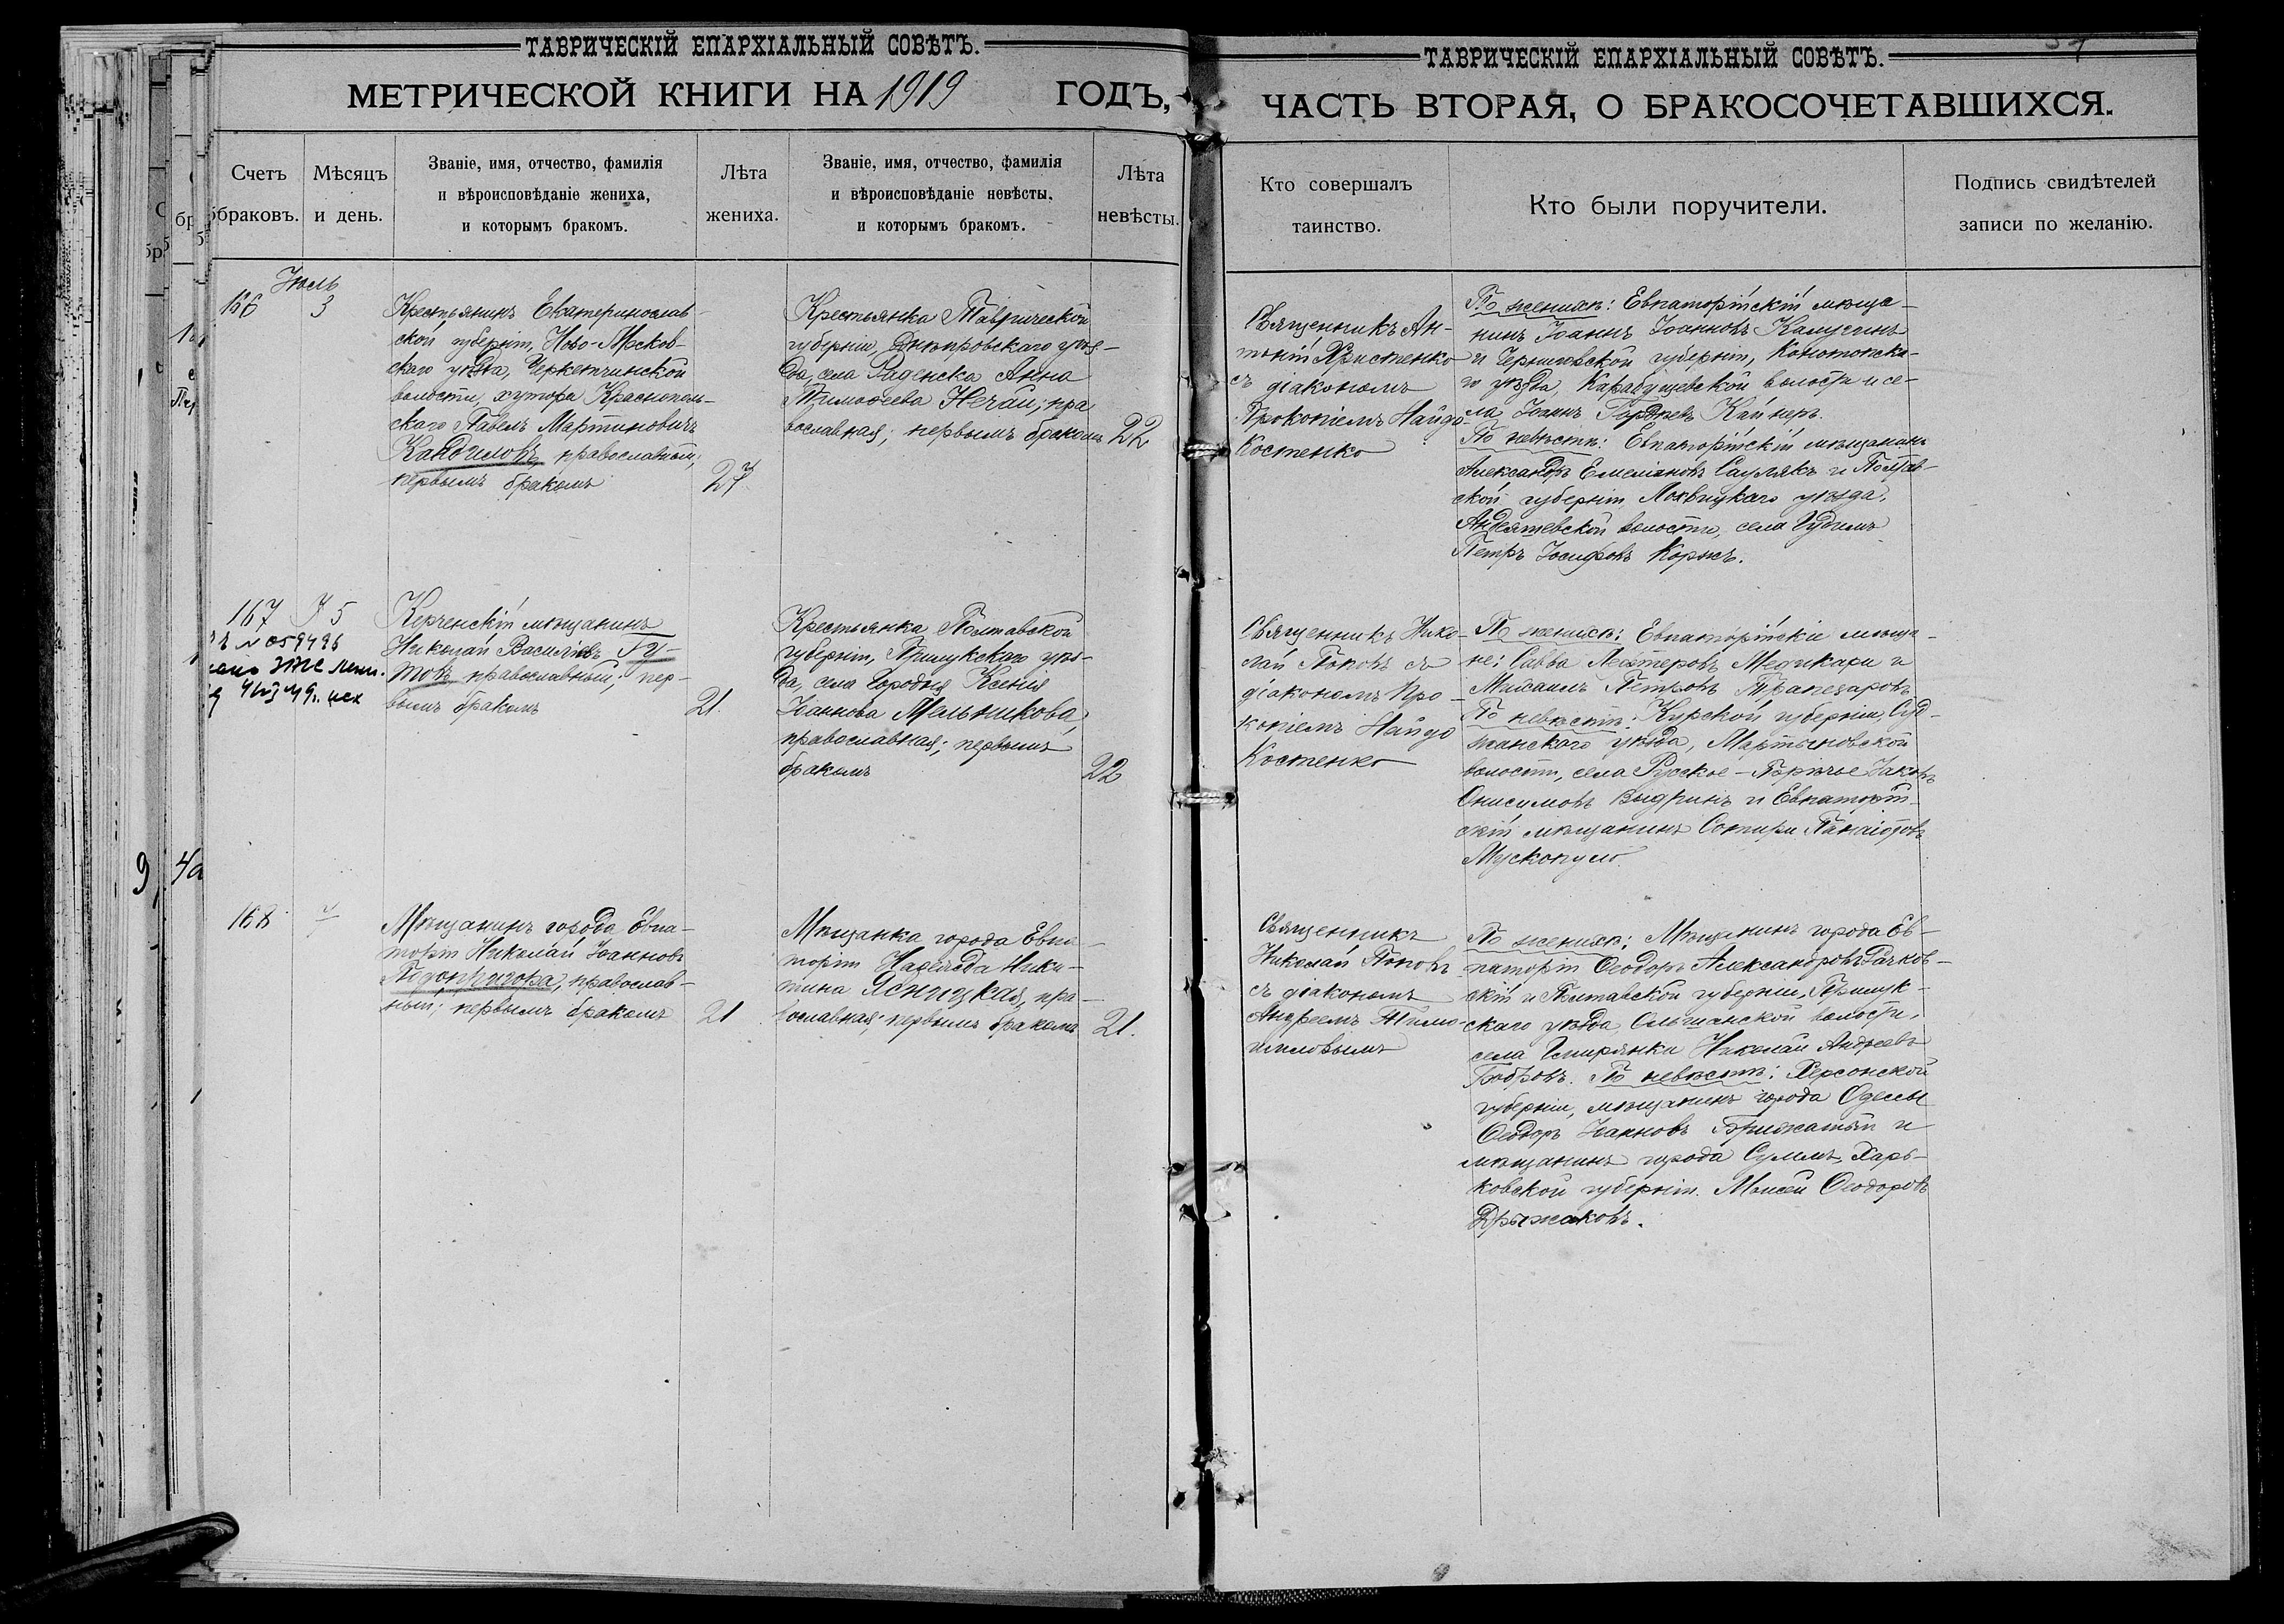 ТАВРИЧЕСКІЙ ЕПАРХІАЛЬНЫЙ СОВѢТЪ.
МЕТРИЧЕСКОЙ КНИГИ НА 1919 ГОДЪ,
Счетъ браковъ.
Мѣсяцъ и день.
Званіе, имя, отчество, фамилія
и вѣроисповѣданіе жениха,
и которымъ бракомъ.
Лѣта
жениха.
Званіе, имя, отчество, фамилія
и вѣроисповѣданіе невѣсты,
и которымъ бракомъ.
Лѣта
невѣсты.
ТАВРИЧЕСКІЙ ЕПАРХІАЛЬНЫЙ СОВѢТЪ.
ЧАСТЬ ВТОРАЯ, О БРАКОСОЧЕТАВШИХСЯ.
Кто совершалъ
таинство.
Кто были поручители.
Подпись свидѣтелей
записи по желанію.
Іюль
166
3
Крестьянинъ Екатеринослав-
ской губерніи, Ново-Москов-
скаго уѣзда,
волости, хутора Краснополь-
скаго Павелъ Мартиновичъ
православный;
первымъ бракомъ
27
Крестьянка Таврической
губерніи, Днѣпровскаго уѣз-
да, села Раденска Анна
Тимофеева Нечай; пра
вославная; первымъ бракомъ
22
Священникъ Ан-
тоній Христенко
съ діакономъ
Прокопіемъ Найдо-
Костенко
По женихѣ: Евпаторійскій мѣща-
нинъ Іоаннъ Іоанновъ
и Черниговской губерніи, Конотопска-
го уѣзда, волости и се-
ла Іоаннъ
По невѣстѣ: Евпаторійскій мѣщанинъ
Александръ Емеліановъ и Полтав-
ской губерніи Лохвицкаго уѣзда,
волости, села
Петръ Іосифовъ Коржъ.
167
5
N 059496
Керченскій мѣщанинъ
Николай Василіевъ Гу-
товъ православный; пер-
вымъ бракомъ
21.
Крестьянка Полтавской
губерніи, Прилукскаго уѣз-
да, села Городня Ксенія
Іоаннова Мельникова,
православная; первымъ
бракомъ
22
Священникъ Нико-
лай Поповъ съ
діакономъ Про-
копіемъ Найдо
Костенко
По женихѣ: Евпаторійскіе мѣща-
не: Савва Медикари и
Михаилъ Петровъ Трапезаровъ
По невѣстѣ: Курской губерніи, Суд-
жанскаго уѣзда, Мартыновской
волости, села Русское-Порѣчье Іаковъ
Онисимовъ Выдринъ и Евпаторій-
скій мѣщанинъ Сотири Панаіотовъ
Мускопуло.
168
Мѣщанинъ города Евпа-
торіи Николай Іоанновъ
Подопригора, православ-
ный; первымъ бракомъ
21
Мѣщанка города Евпа-
торіи Надежда Ники-
тина Ясницкая, пра-
вославная первымъ бракомъ
21.
Священникъ
Николай Поповъ
съ діакономъ
Андреемъ Тимо-
шиловымъ
По женихѣ: Мѣщанинъ города Ев-
паторіи Ѳеодоръ Александровъ Рачков-
скій и Полтавской губерніи, Прилук-
скаго уѣзда Ольшанской волости,
села Николай Андреевъ
Бобровъ. По невѣстѣ: Херсонской
губерніи, мѣщанинъ города Одессы
Ѳеодоръ Іоанновъ и
мѣщанинъ города Сумъ, Харь-
ковской губерніи Моисей Ѳеодоровъ
Дрыжаковъ.